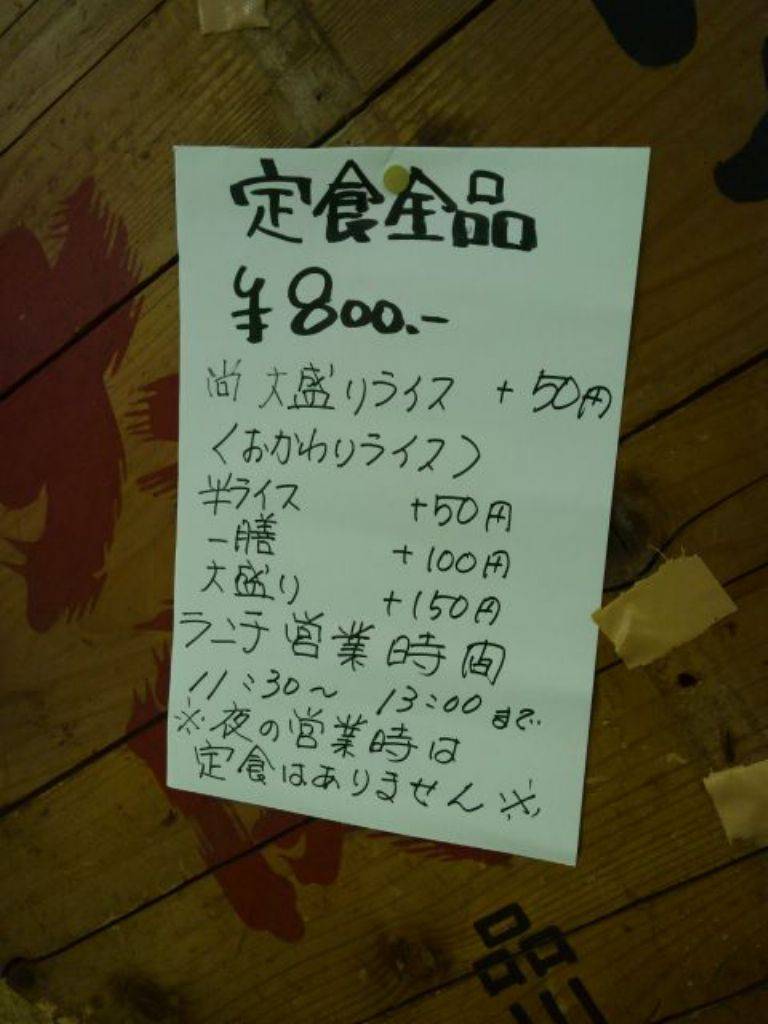 定食全品
¥800.-
尚 大盛りライス +50円
〈おかわりライス〉
半ライス +50円
一膳 +100円
大盛り +150円
ランチ営業時間
11:30〜 13:00まで
※夜の営業時は
定食はありません※
品